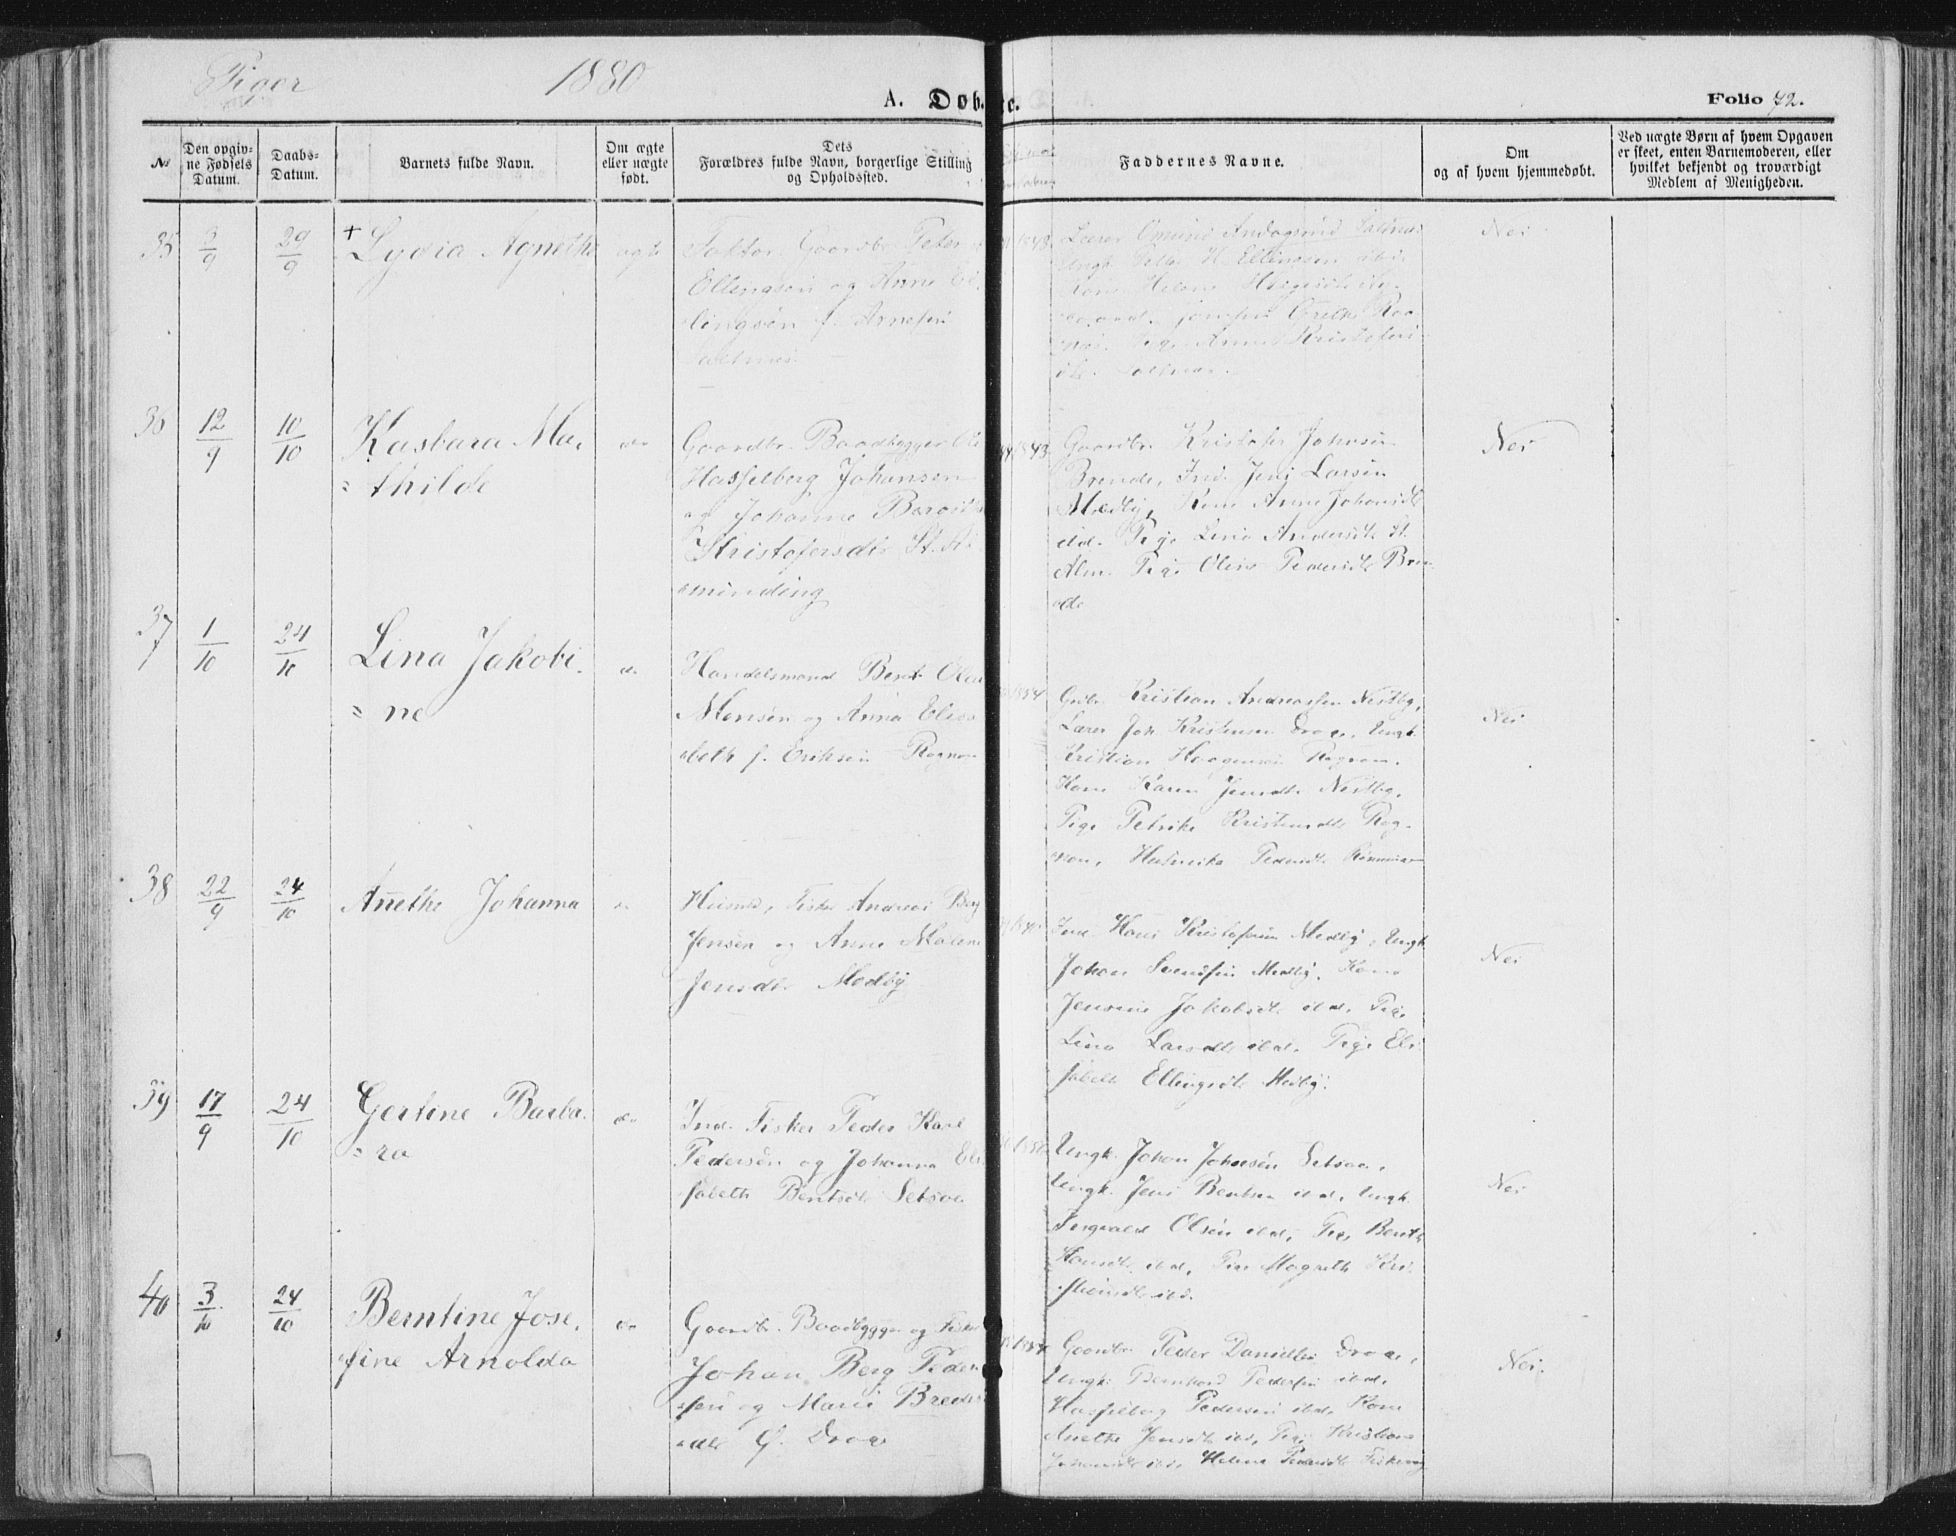 Piger 1880
A. Døb te. Folio 72.
№
Den opgiv-
ne Fødsels
Datum.
Daabs-
Datum.
Barnets fulde Navn.
Om ægte
eller uægte
født.
Dets
Forældres fulde Navn, borgerlige Stilling
og Opholdssted.
Faddernes Navne.
Om
og af hvem hjemmedøbt.
Ved uægte Børn af hvem Opgaven
er skeet, enten Barnemoderen, eller
hvilket bekjendt og troværdigt
Medlem af Menigheden.
35
3/9
29/9
+ Lydia Agnethe
ægte
Faktor, Gaardbr. Peter
Ellingsen og Anne El-
lingsen f. Arnesen
Saltnes
1843
Lærer Amund Saltnes
Ungk. H. Ellingsen ibid.
Kone Helene
Grethe
Pige Anne Kristofers
Saltnes.
Nei
36
12/9
10/10
Kasbara Ma-
= thilde
do
Gaardbr. Baadbygger Ole
Hasselberg Johansen
og Johanna Beroithe
Kristofersdtr. St. Al-
minding
1843
Gaardbr. Kristofer Johnsen
Brende, Ind. Jens Larsen
Medby, Kone Anne Johansdtr
ibd. Pige Lina Andersdtr St.
Alm. Pige Oline Pedersdtr Bren-
de
Nei
37
1/10
24/10
Lina Jakobi-
= ne
do
Handelsmand Bernt Olai
Monsen og Anna Elisa-
beth f. Eriksen Rognan
1854
Grbr. Kristian Andreassen Nestby,
Lærer Joh. Kristensen Drage, Ungk.
Kristian Haagensen Rognan.
Kone Karen Jensdtr Nestby.
Pige Petrike Kristensdtr Rog-
nan, Pedersdtr.
Nei
38
22/9
24/10
Anethe Johanna
do
Huusmd, Fisker Andreas Berg
Jensen og Anne Malene
Jensdtr. Medby
Ind. Hans Kristofersen Medby, Ungk.
Johan Svendsen Medby. Kone
Jensine Jakobsdtr. ibd. Pige
Lina Larsdtr ibd. Pige Eli-
sabeth Ellingsdtr Medby.
Nei
39
17/9
24/10
Gertine Barba-
= ra
do
Ind. Fisker Peder Karl
Pedersen og Johanna Eli-
sabeth Bentsdtr Setsaa
Ungk. Johan Johnsen Setsaa,
Ungk. Jens Bentsen ibd. Ungk.
Ingvald Olsen ibd, Pige Bentte
Hansdtr. ibd. Pige Magrethe Kri-
stiansdtr ibd.
Nei
40
3/10
24/10
Berntine Jose-
fine Arnolda
do
Gaardbr. Baadbygger og Fisker
Johan Berg Peder-
sen og Marie Breder-
Drage
Gaardbr. Peder Danielsen Drage,
Ungk. Bernhard Pedersen ibd.
Hasselberg Pedersen ibd. Kone
Anethe Jensdtr ibd, Pige Kristiane
Johansdtr ibd, Helene Pedersdtr Fiskvaag
Nei.